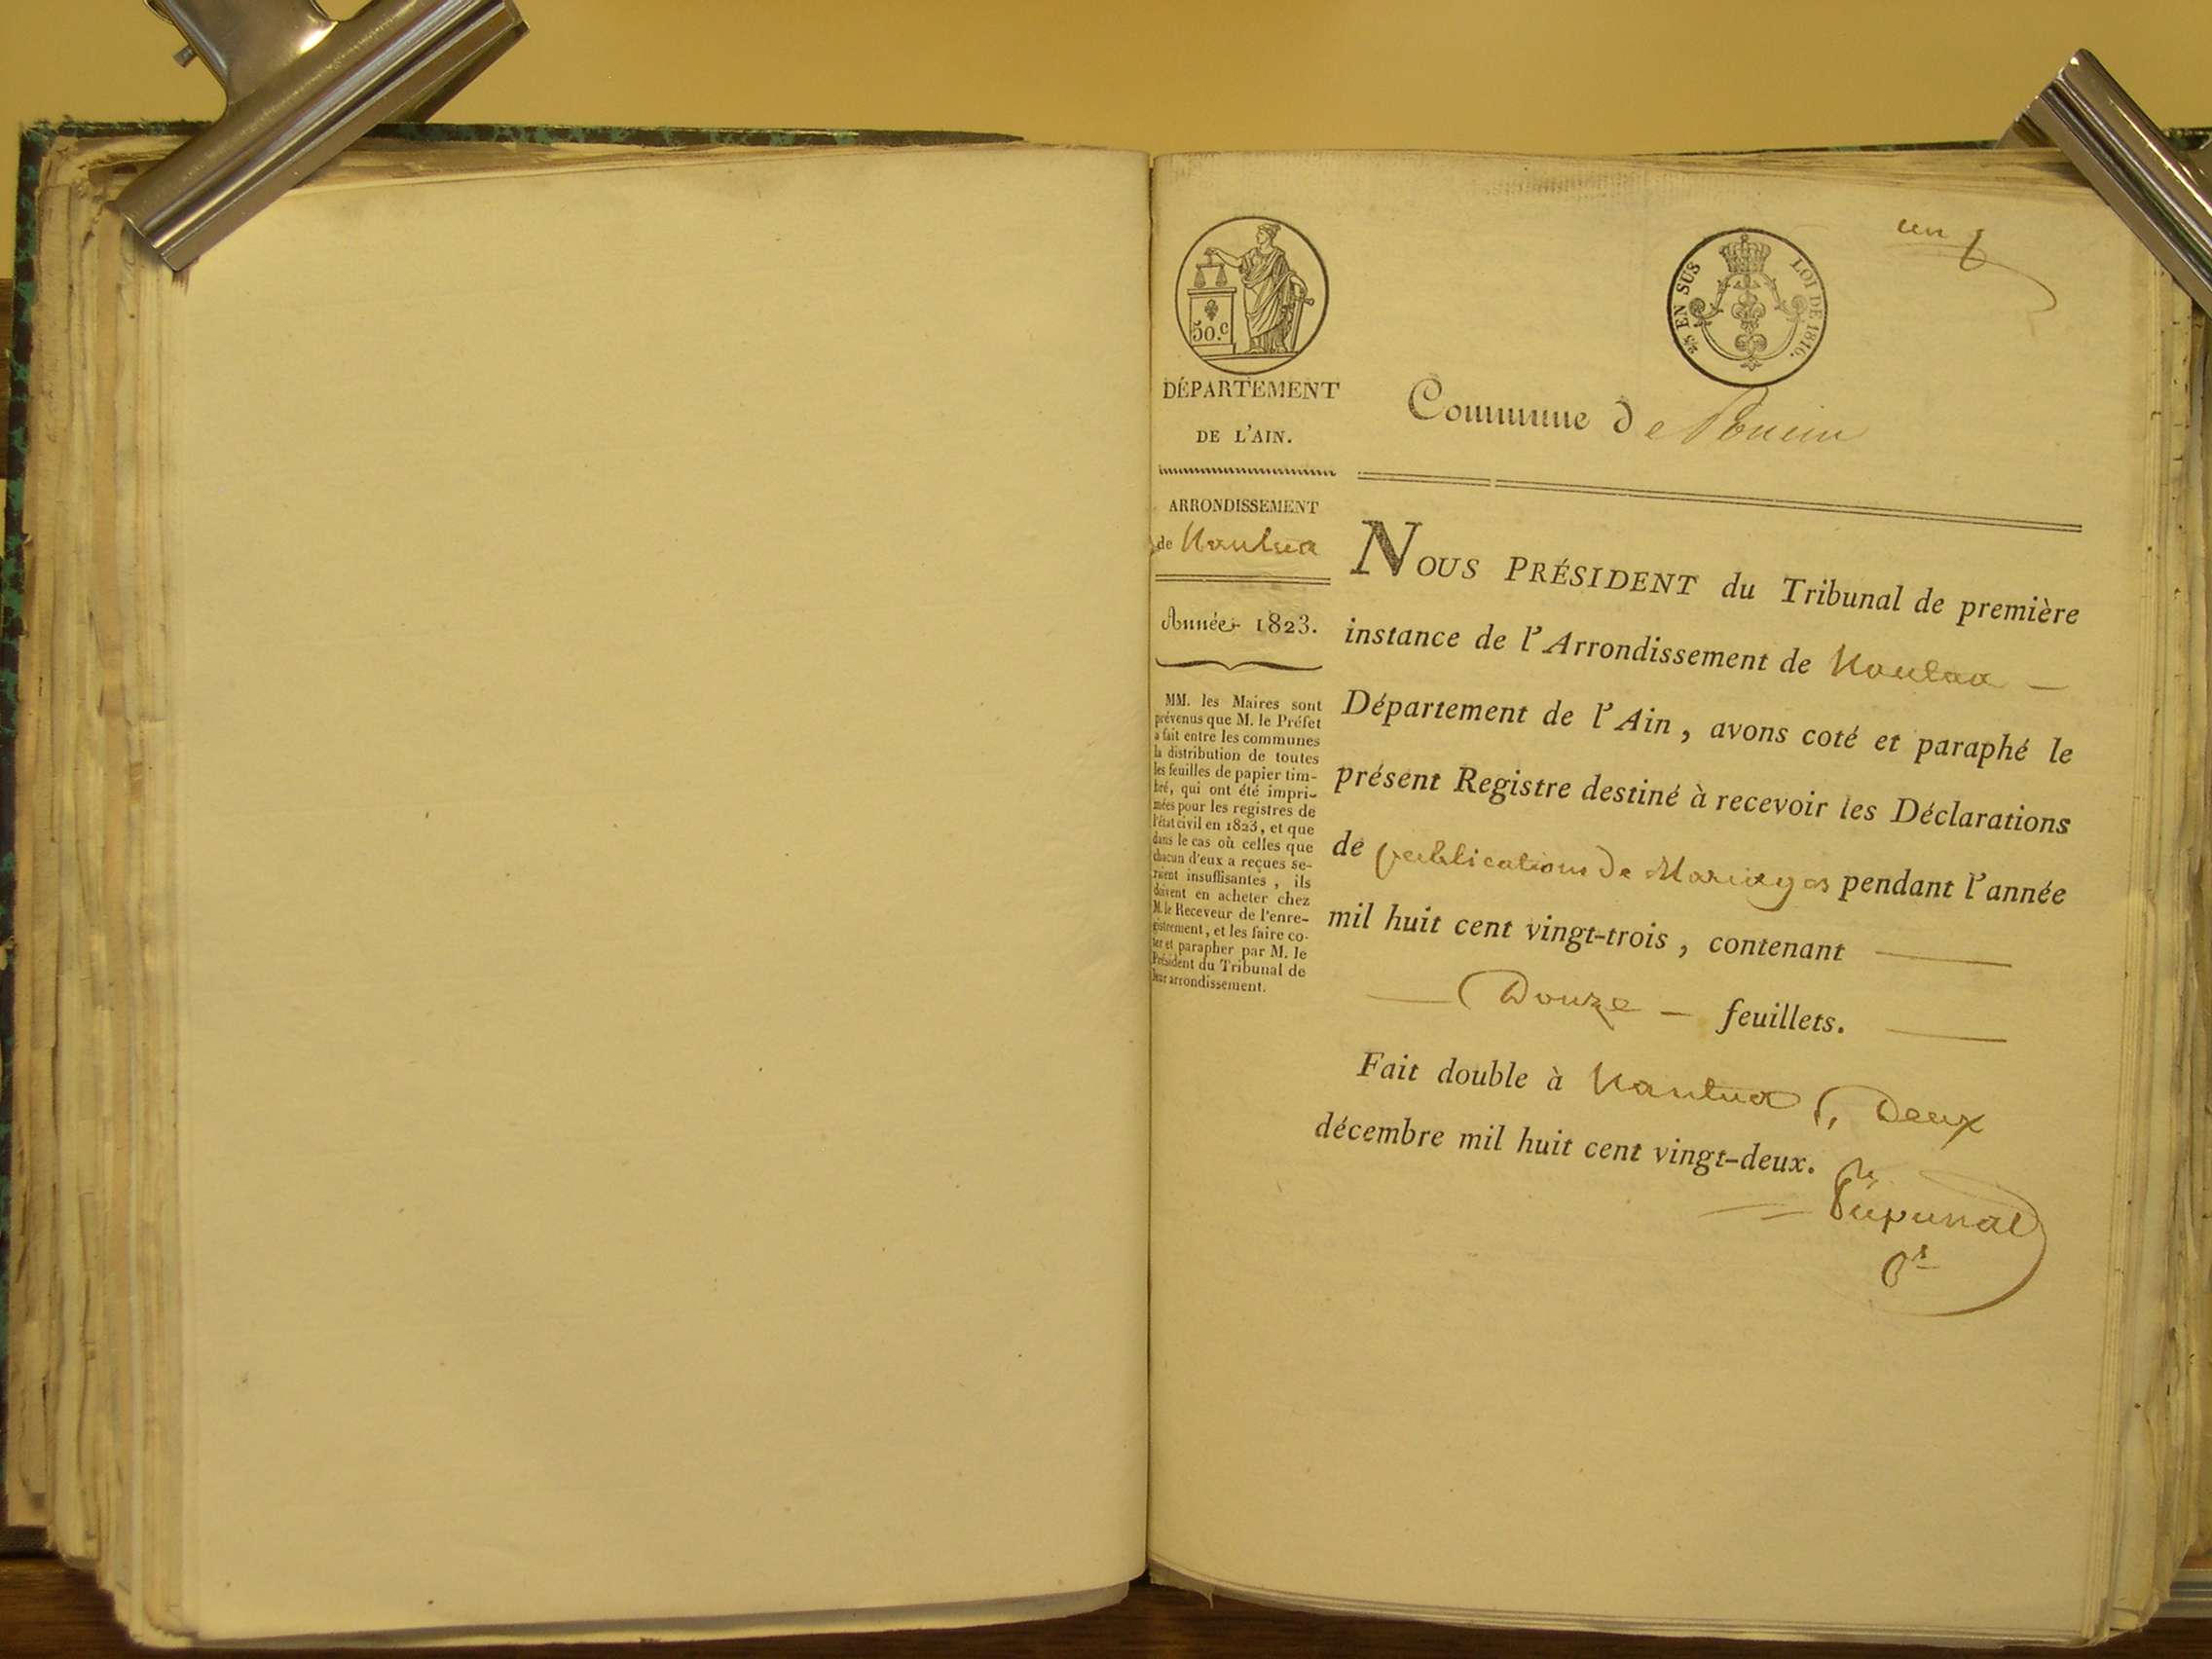 un
50.c
25 EN SUS LOI DE 1816.
DÉPARTEMENT
DE L'AIN.
ARRONDISSEMENT
de Nantua
Année 1823.
MM. les Maires sont
prévenus que M. le Préfet
a fait entre les communes
la distribution de toutes
les feuilles de papier tim-
bré, qui ont été impri-
mées pour les registres de
l'état civil en 1823, et que
dans le cas où celles que
chacun d'eux a reçues se-
raient insuffisantes, ils
doivent en acheter chez
M. le Receveur de l'enre-
gistrement, et les faire co-
ter et parapher par M. le
Président du Tribunal de
leur arrondissement.
Commune de Poncin
NOUS PRÉSIDENT du Tribunal de première
instance de l'Arrondissement de Nantua —
Département de l'Ain, avons coté et paraphé le
présent Registre destiné à recevoir les Déclarations
de publications de Mariages pendant l'année
mil huit cent vingt-trois, contenant —
— Douze — feuillets. —
Fait double à Nantua, Deux
décembre mil huit cent vingt-deux.